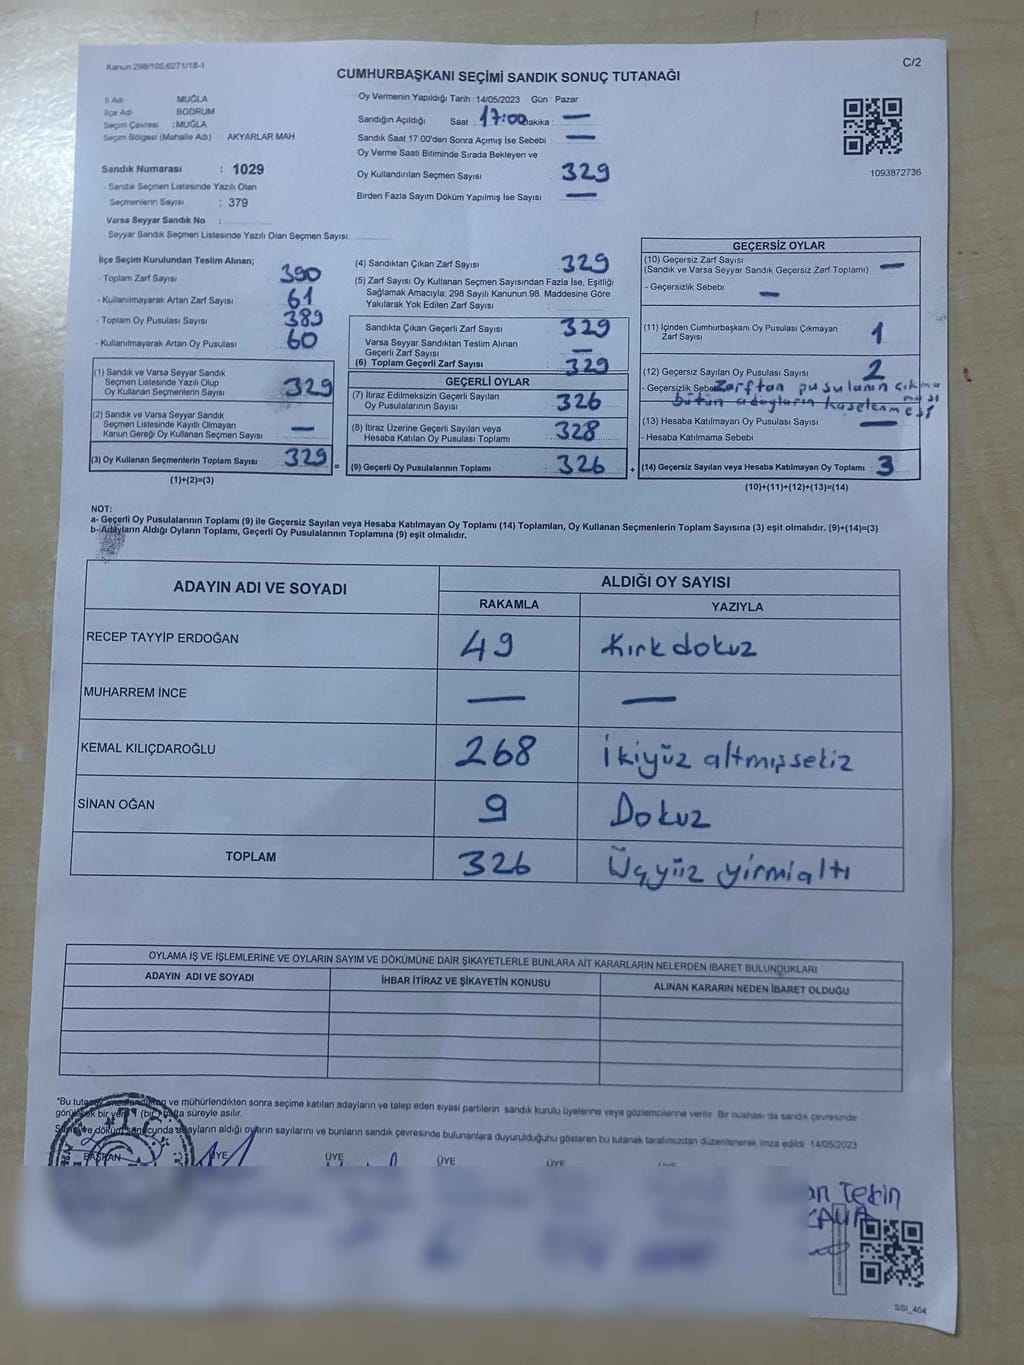 Kanun:298/105;6271/18-1
C/2
CUMHURBAŞKANI SEÇİMİ SANDIK SONUÇ TUTANAĞI
İl Adı : MUĞLA
İlçe Adı : BODRUM
Seçim Çevresi : MUĞLA
Seçim Bölgesi (Mahalle Adı) : AKYARLAR MAH
Sandık Numarası : 1029
- Sandık Seçmen Listesinde Yazılı Olan
Seçmenlerin Sayısı : 379
Varsa Seyyar Sandık No :
- Seyyar Sandık Seçmen Listesinde Yazılı Olan Seçmen Sayısı:
Oy Vermenin Yapıldığı Tarih :14/05/2023 Gün : Pazar
Sandığın Açıldığı Saat : 17:00 Dakika : —
Sandık Saat 17:00'den Sonra Açımış İse Sebebi : —
Oy Verme Saati Bitiminde Sırada Bekleyen ve
Oy Kullandırılan Seçmen Sayısı : 329
Birden Fazla Sayım Döküm Yapılmış İse Sayısı : —
1093872736
İlçe Seçim Kurulundan Teslim Alınan;
- Toplam Zarf Sayısı : 390
- Kullanılmayarak Artan Zarf Sayısı : 61
- Toplam Oy Pusulası Sayısı : 389
- Kullanılmayarak Artan Oy Pusulası : 60
(1) Sandık ve Varsa Seyyar Sandık
Seçmen Listesinde Yazılı Olup
Oy Kullanan Seçmenlerin Sayısı : 329
(2) Sandık ve Varsa Seyyar Sandık
Seçmen Listesinde Kayıtlı Olmayan
Kanun Gereği Oy Kullanan Seçmen Sayısı : —
(3) Oy Kullanan Seçmenlerin Toplam Sayısı : 329 =
(1)+(2)=(3)
(4) Sandıktan Çıkan Zarf Sayısı : 329
(5) Zarf Sayısı Oy Kullanan Seçmen Sayısından Fazla İse, Eşitliği
Sağlamak Amacıyla; 298 Sayılı Kanunun 98. Maddesine Göre
Yakılarak Yok Edilen Zarf Sayısı :
Sandıkta Çıkan Geçerli Zarf Sayısı : 329
Varsa Seyyar Sandıktan Teslim Alınan
Geçerli Zarf Sayısı : —
(6) Toplam Geçerli Zarf Sayısı : 329
GEÇERLİ OYLAR
(7) İtiraz Edilmeksizin Geçerli Sayılan
Oy Pusulalarının Sayısı : 326
(8) İtiraz Üzerine Geçerli Sayılan veya
Hesaba Katılan Oy Pusulası Toplamı : 328
(9) Geçerli Oy Pusulalarının Toplamı : 326 +
GEÇERSİZ OYLAR
(10) Geçersiz Zarf Sayısı
(Sandık ve Varsa Seyyar Sandık Geçersiz Zarf Toplamı) : —
- Geçersizlik Sebebi : —
(11) İçinden Cumhurbaşkanı Oy Pusulası Çıkmayan
Zarf Sayısı : 1
(12) Geçersiz Sayılan Oy Pusulası Sayısı : 2
- Geçersizlik Sebebi Zarftan pusulanın çıkma
ması
bütün adayların kaşelenmesi
(13) Hesaba Katılmayan Oy Pusulası Sayısı : —
- Hesaba Katılmama Sebebi :
(14) Geçersiz Sayılan veya Hesaba Katılmayan Oy Toplamı : 3
(10)+(11)+(12)+(13)=(14)
NOT:
a- Geçerli Oy Pusulalarının Toplamı (9) ile Geçersiz Sayılan veya Hesaba Katılmayan Oy Toplamı (14) Toplamları, Oy Kullanan Seçmenlerin Toplam Sayısına (3) eşit olmalıdır. (9)+(14)=(3)
b- Adayların Aldığı Oyların Toplamı, Geçerli Oy Pusulalarının Toplamına (9) eşit olmalıdır.
ADAYIN ADI VE SOYADI ALDIĞI OY SAYISI
RAKAMLA YAZIYLA
RECEP TAYYİP ERDOĞAN 49 Kırk dokuz
MUHARREM İNCE — —
KEMAL KILIÇDAROĞLU 268 İkiyüz altmışsekiz
SİNAN OĞAN 9 Dokuz
TOPLAM 326 Üçyüz yirmialtı
OYLAMA İŞ VE İŞLEMLERİNE VE OYLARIN SAYIM VE DÖKÜMÜNE DAİR ŞİKAYETLERLE BUNLARA AİT KARARLARIN NELERDEN İBARET BULUNDUKLARI
ADAYIN ADI VE SOYADI İHBAR İTİRAZ VE ŞİKAYETİN KONUSU ALINAN KARARIN NEDEN İBARET OLDUĞU
"Bu tutanak ve mühürlendikten sonra seçime katılan adayların ve talep eden siyasi partilerin sandık kurulu üyelerine veya gözlemcilerine verilir. Bir nüshası da sandık çevresinde
bir yere (bir) hafta süreyle asılır.
Sayım ve döküm sonucunda adayların aldığı oyların sayılarını ve bunların sandık çevresinde bulunanlara duyurulduğunu gösteren bu tutanak tarafımızdan düzenlenerek imza edildi. 14/05/2023
BAŞKAN ÜYE ÜYE ÜYE ÜYE
Tekin
SSI_404